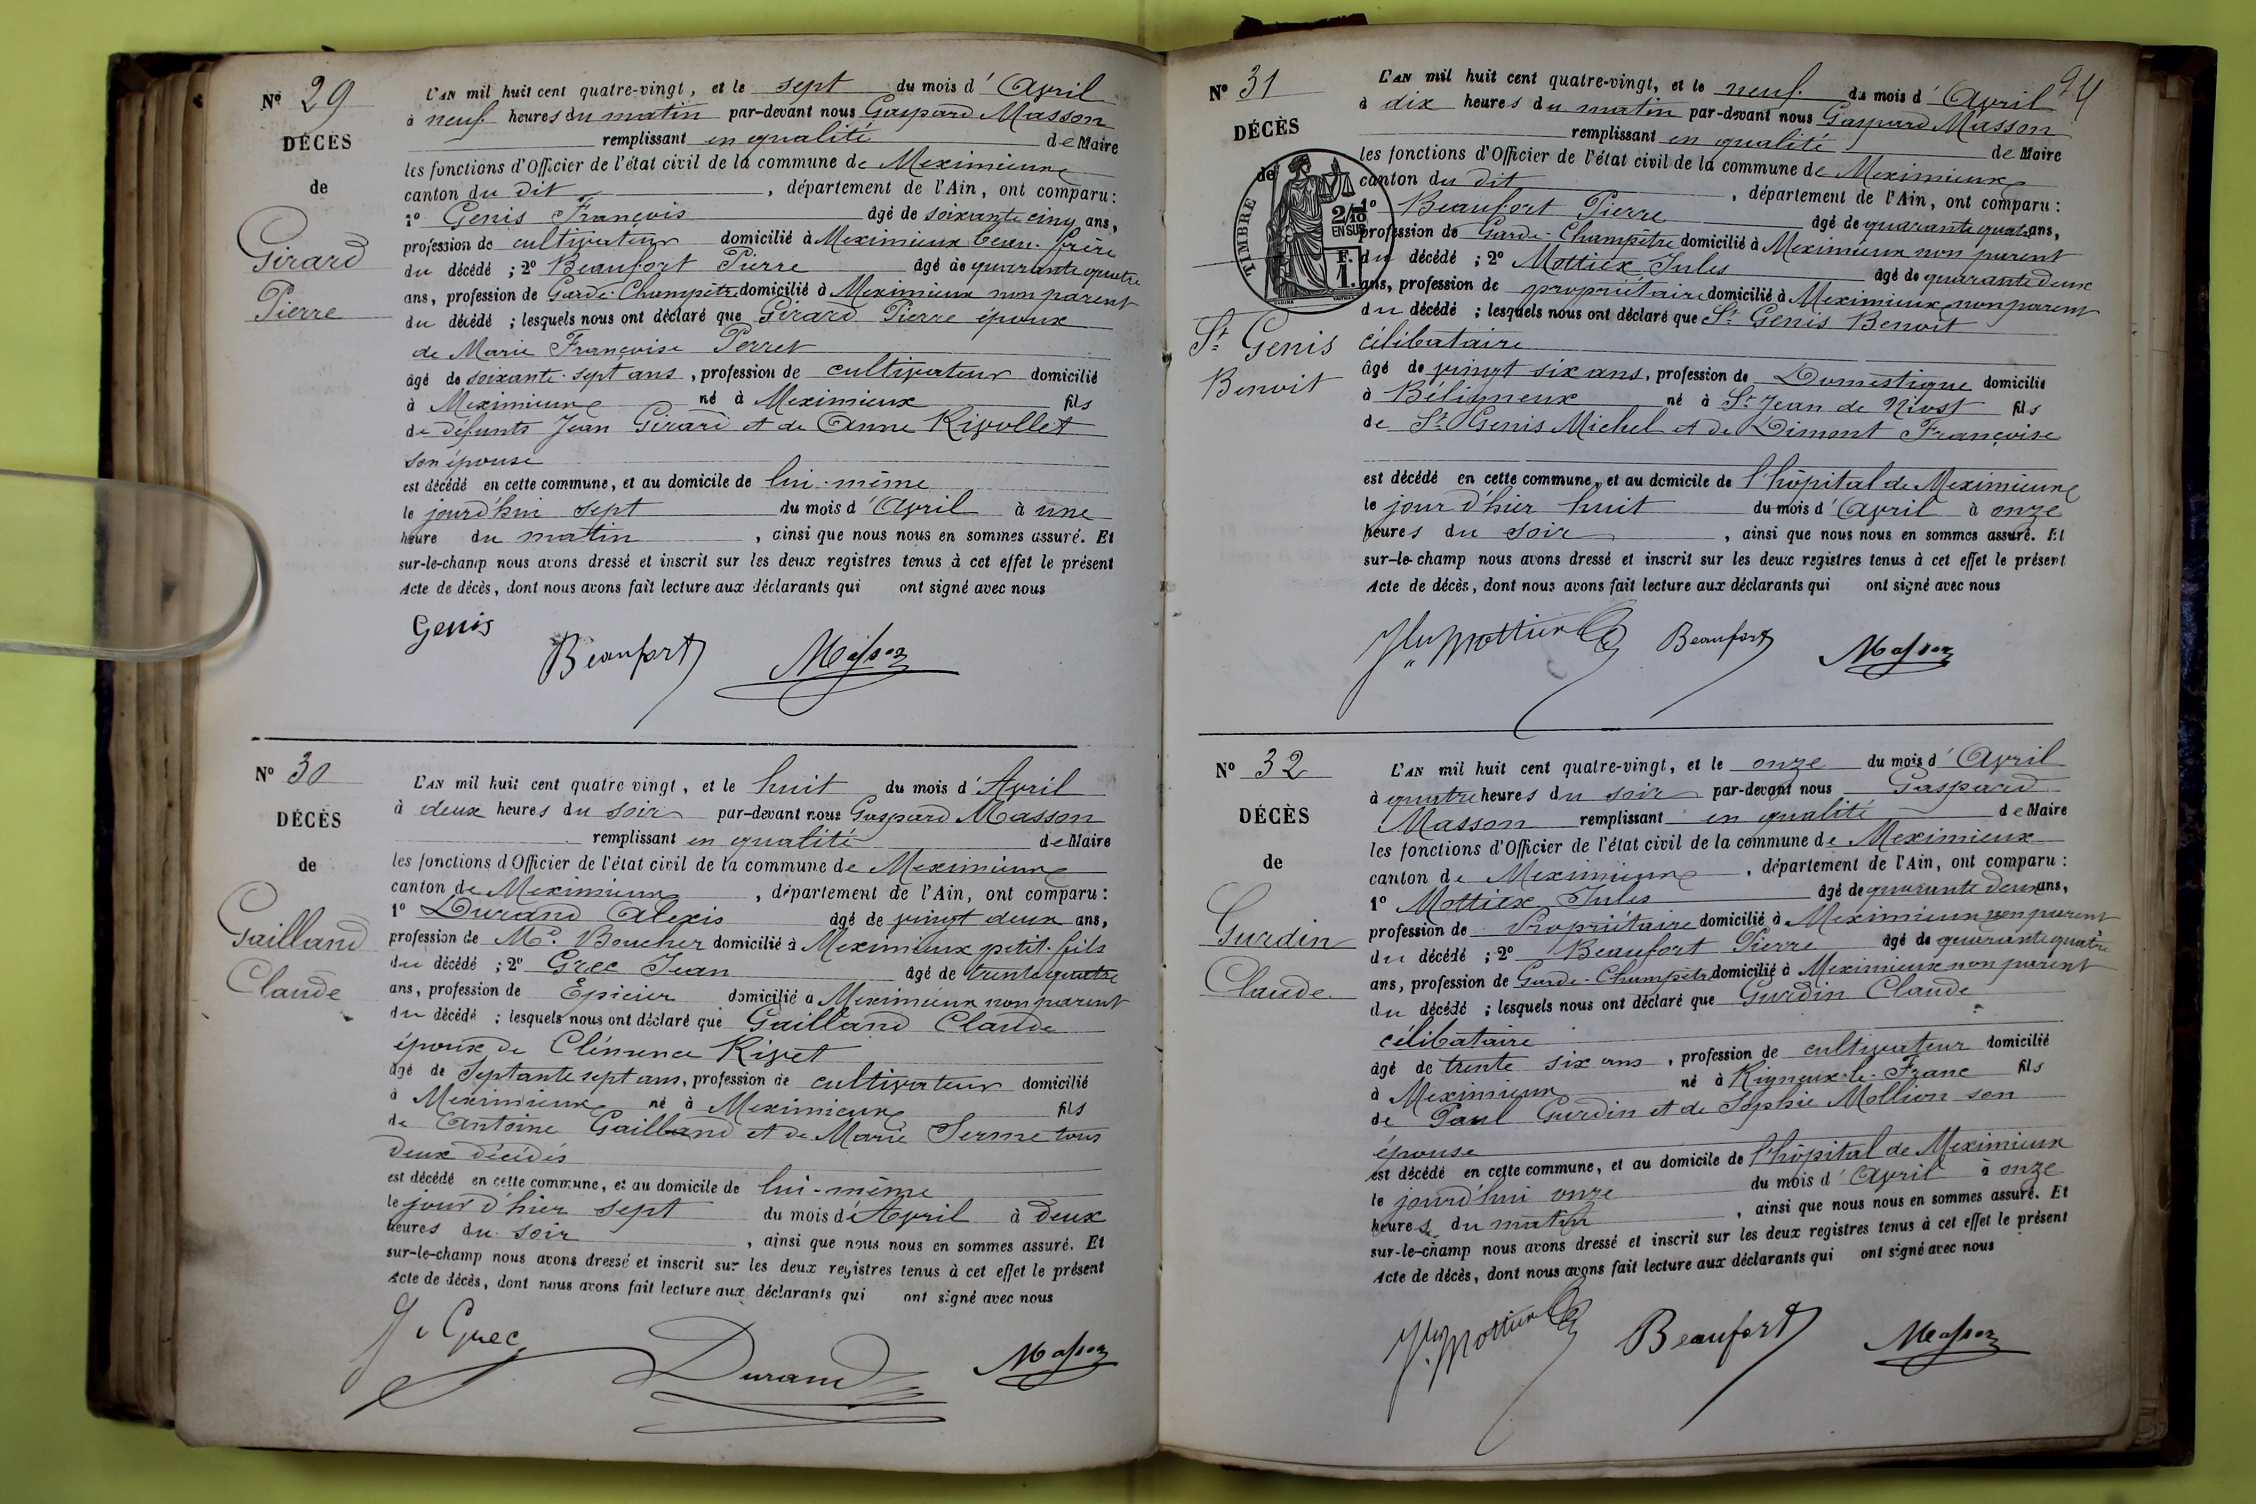 Nº 29
DÉCÈS
de
Girard
Pierre
L'AN mil huit cent quatre-vingt, et le sept du mois d'Avril
à neuf heures du matin par-devant nous Gaspard Masson
remplissant en qualité de Maire
les fonctions d'Officier de l'état civil de la commune de Meximieux
canton du dit, département de l'Ain, ont comparu:
1º Genis François âgé de soixante cinq ans,
profession de cultivateur domicilié à Meximieux beau-frère
du décédé ; 2º Beaufort Pierre âgé de quarante quatre
ans, profession de Garde-Champêtre domicilié à Meximieux non parent
du décédé ; lesquels nous ont déclaré que Girard Pierre époux
de Marie Françoise Perret
âgé de soixante-sept ans, profession de cultivateur domicilié
à Meximieux né à Meximieux fils
de défunts Jean Girard et de Anne Rivollet
son épouse
est décédé en cette commune, et au domicile de lui-même
le jourd'hui sept du mois d'Avril à une
heure du matin, ainsi que nous nous en sommes assuré. Et
sur-le-champ nous avons dressé et inscrit sur les deux registres tenus à cet effet le présent
Acte de décès, dont nous avons fait lecture aux déclarants qui ont signé avec nous
Genis
Beaufort
Masson
Nº 30
DÉCÈS
de
Gailland
Claude
L'AN mil huit cent quatre vingt, et le huit du mois d'Avril
à deux heures du soir par-devant nous Gaspard Masson
remplissant en qualité de Maire
les fonctions d'Officier de l'état civil de la commune de Meximieux
canton de Meximieux, département de l'Ain, ont comparu:
1º Durand Alexis âgé de vingt deux ans,
profession de Md. Boucher domicilié à Meximieux petit-fils
du décédé ; 2º Grec Jean âgé de trente quatre
ans, profession de Epicier domicilié à Meximieux non parent
du décédé ; lesquels nous ont déclaré que Gailland Claude
époux de Clémence Rivet
âgé de septante sept ans, profession de cultivateur domicilié
à Meximieux né à Meximieux fils
de Antoine Gailland et de Marie Serme tous
deux décédés
est décédé en cette commune, et au domicile de lui-même
le jour d'hier sept du mois d'Avril à deux
heures du soir, ainsi que nous nous en sommes assuré. Et
sur-le-champ nous avons dressé et inscrit sur les deux registres tenus à cet effet le présent
Acte de décès, dont nous avons fait lecture aux déclarants qui ont signé avec nous
J. Grec
Durand
Masson
24
Nº 31
DÉCÈS
de
TIMBRE
2/10
EN SUS
F.
1.
St Genis
Benoit
L'AN mil huit cent quatre-vingt, et le neuf du mois d'Avril
à dix heures du matin par-devant nous Gaspard Masson
remplissant en qualité de Maire
les fonctions d'Officier de l'état civil de la commune de Meximieux
canton du dit, département de l'Ain, ont comparu:
1º Beaufort Pierre âgé de quarante quatre ans,
profession de Garde-Champêtre domicilié à Meximieux non parent
du décédé ; 2º Mottiex Jules âgé de quarante deux
ans, profession de propriétaire domicilié à Meximieux non parent
du décédé ; lesquels nous ont déclaré que St Genis Benoit
célibataire
âgé de vingt six ans, profession de Domestique domicilié
à Béligneux né à St Jean de Niost fils
de St Genis Michel et de Dimont Françoise
est décédé en cette commune, et au domicile de l'hôpital de Meximieux
le jour d'hier huit du mois d'Avril à onze
heures du soir, ainsi que nous nous en sommes assuré. Et
sur-le-champ nous avons dressé et inscrit sur les deux registres tenus à cet effet le présent
Acte de décès, dont nous avons fait lecture aux déclarants qui ont signé avec nous
Beaufort
Masson
Nº 32
DÉCÈS
de
Gurdin
Claude
L'AN mil huit cent quatre-vingt, et le onze du mois d'Avril
à quatre heures du soir par-devant nous Gaspard
Masson remplissant en qualité de Maire
les fonctions d'Officier de l'état civil de la commune de Meximieux
canton de Meximieux, département de l'Ain, ont comparu:
1º Mottiex Jules âgé de quarante deux ans,
profession de Propriétaire domicilié à Meximieux non parent
du décédé ; 2º Beaufort Pierre âgé de quarante quatre
ans, profession de Garde-Champêtre domicilié à Meximieux non parent
du décédé ; lesquels nous ont déclaré que Gurdin Claude
célibataire
âgé de trente six ans, profession de cultivateur domicilié
à Meximieux né à Rigneux-le-Franc fils
de Paul Gurdin et de Sophie Mollion son
épouse
est décédé en cette commune, et au domicile de l'hôpital de Meximieux
le jourd'hui onze du mois d'Avril à onze
heures du matin, ainsi que nous nous en sommes assuré. Et
sur-le-champ nous avons dressé et inscrit sur les deux registres tenus à cet effet le présent
Acte de décès, dont nous avons fait lecture aux déclarants qui ont signé avec nous
Beaufort
Masson